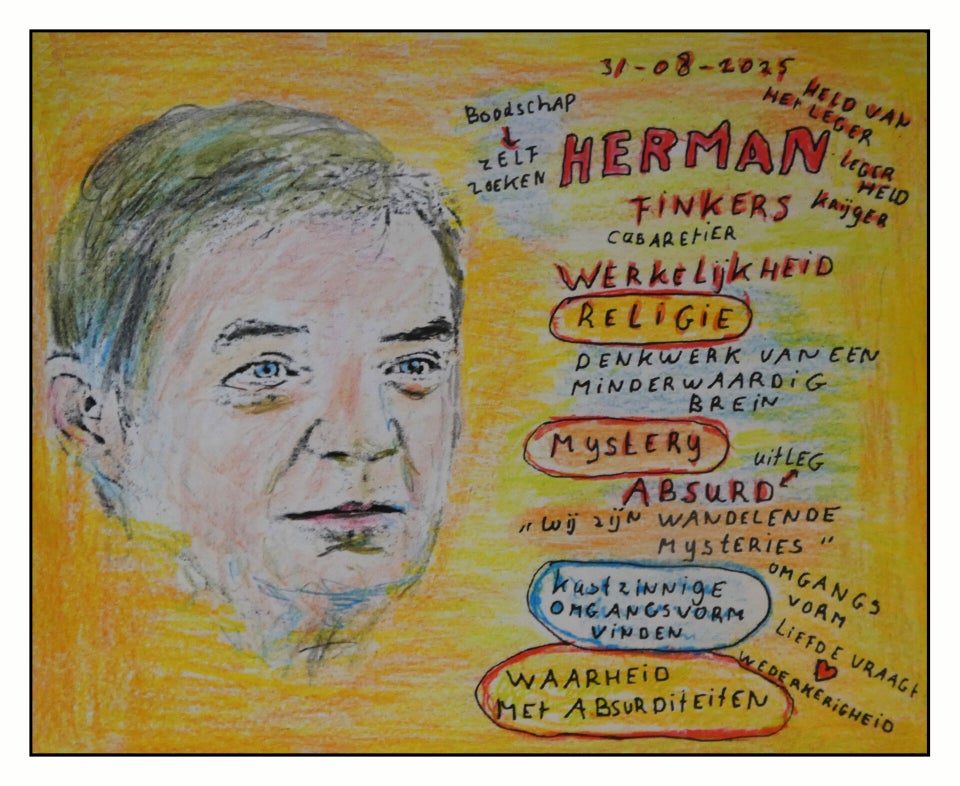 31-08-2025
BOODSCHAP
ZELF
ZOEKEN
HERMAN
HELD VAN
HET LEGER
LEGER
HELD
KRIJGER
FINKERS
CABARETIER
WERKELIJKHEID
RELIGIE
DENKWERK VAN EEN
MINDERWAARDIG
BREIN
MYSTERY
UITLEG
ABSURD
„WIJ ZIJN WANDELENDE
MYSTERIES”
KUSTZINNIGE
OMGANGSVORM
VINDEN
OMGANGS
VORM
LIEFDE VRAAGT
WEDERKERIGHEID
WAARHEID
MET ABSURDITEITEN